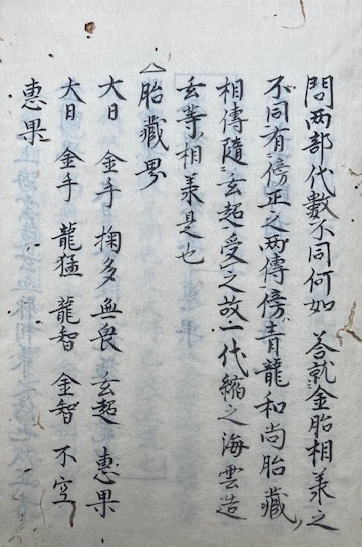 問两部代數不同何如 荅就金胎相羕之
不同有傍正之两傳傍青龍和尚胎藏
相傳隨玄超受之故一代縮之海雲造
玄等相羕是也
△胎藏界
大日 金手 掬多 無畏 玄超 惠果
大日 金手 龍猛 龍智 金智 不空
惠果